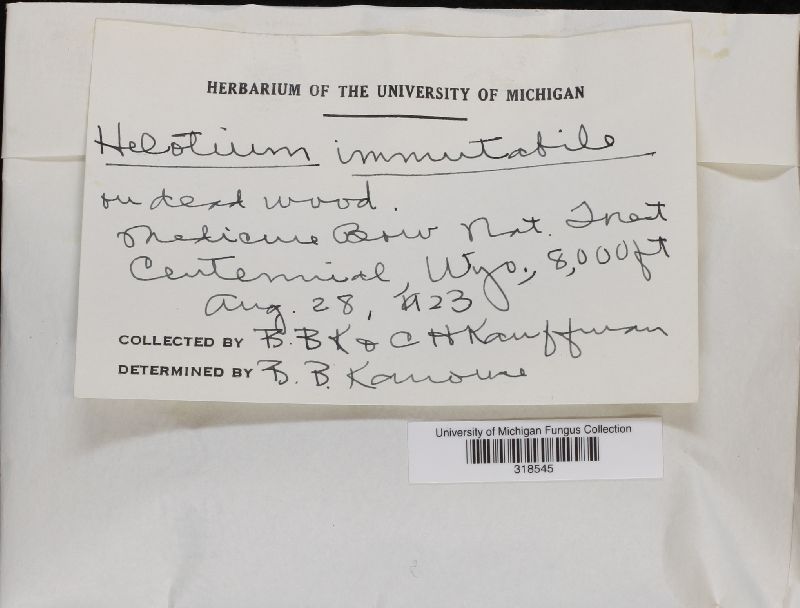 HERBARIUM OF THE UNIVERSITY OF MICHIGAN
Helotium immutabile
on dead wood.
Medicine Bow Nat. Forest
Centennial, Wyo., 8,000ft
Aug. 28, 1923
COLLECTED BY B. B K & C H Kauffman
DETERMINED BY B. B. Kanouse
University of Michigan Fungus Collection
318545